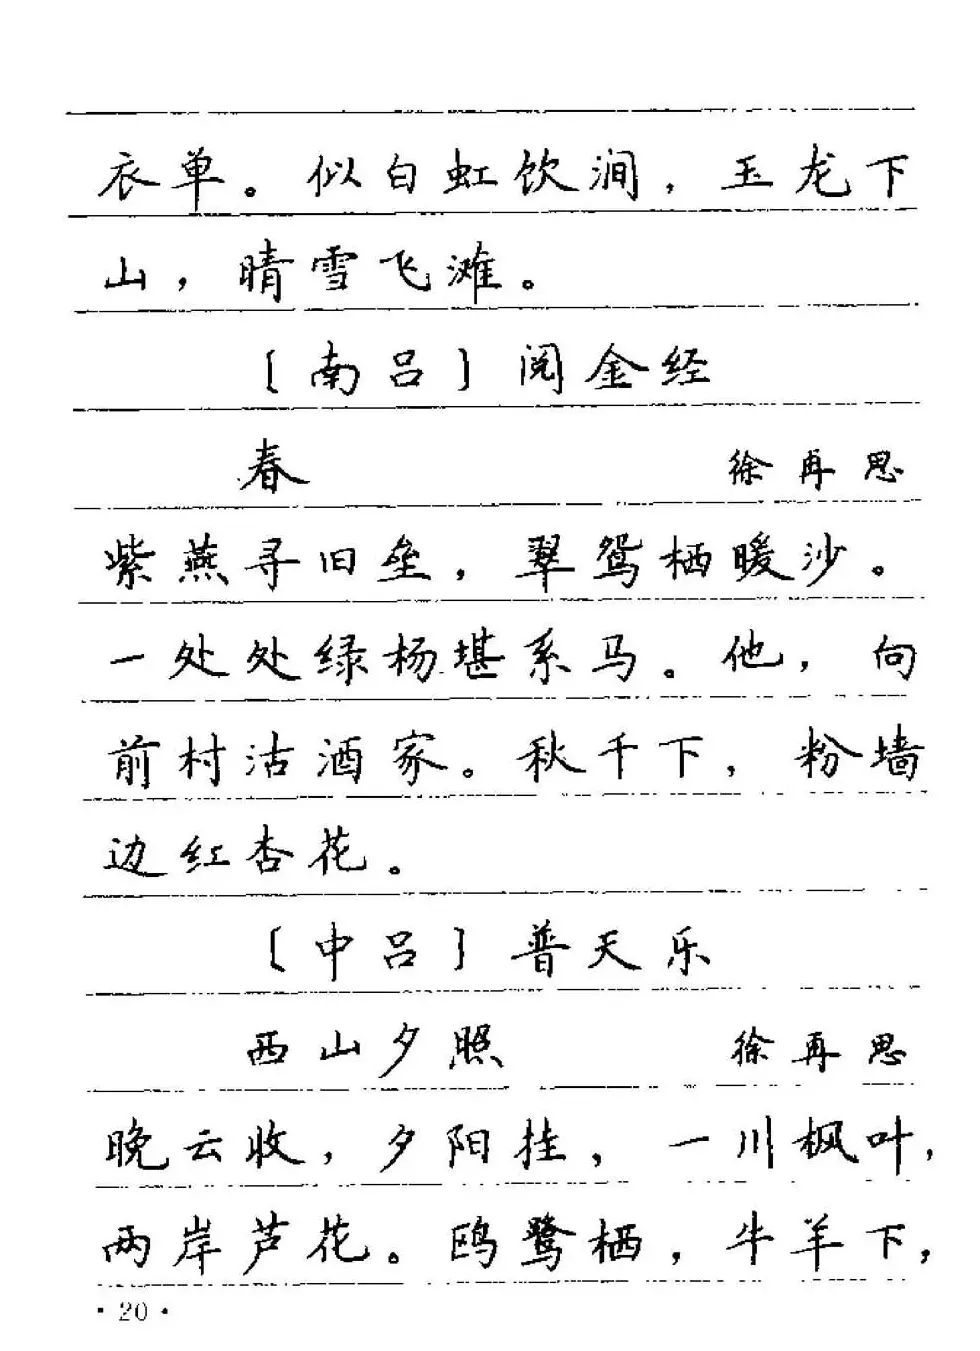 衣单。似白虹饮涧，玉龙下
山，晴雪飞滩。
〔南吕〕阅金经
春 徐再思
紫燕寻旧垒，翠鸳栖暖沙。
一处处绿杨堪系马。他，向
前村沽酒家。秋千下，粉墙
边红杏花。
〔中吕〕普天乐
西山夕照 徐再思
晚云收，夕阳挂，一川枫叶，
两岸芦花。鸥鹭栖，牛羊下，
·20·